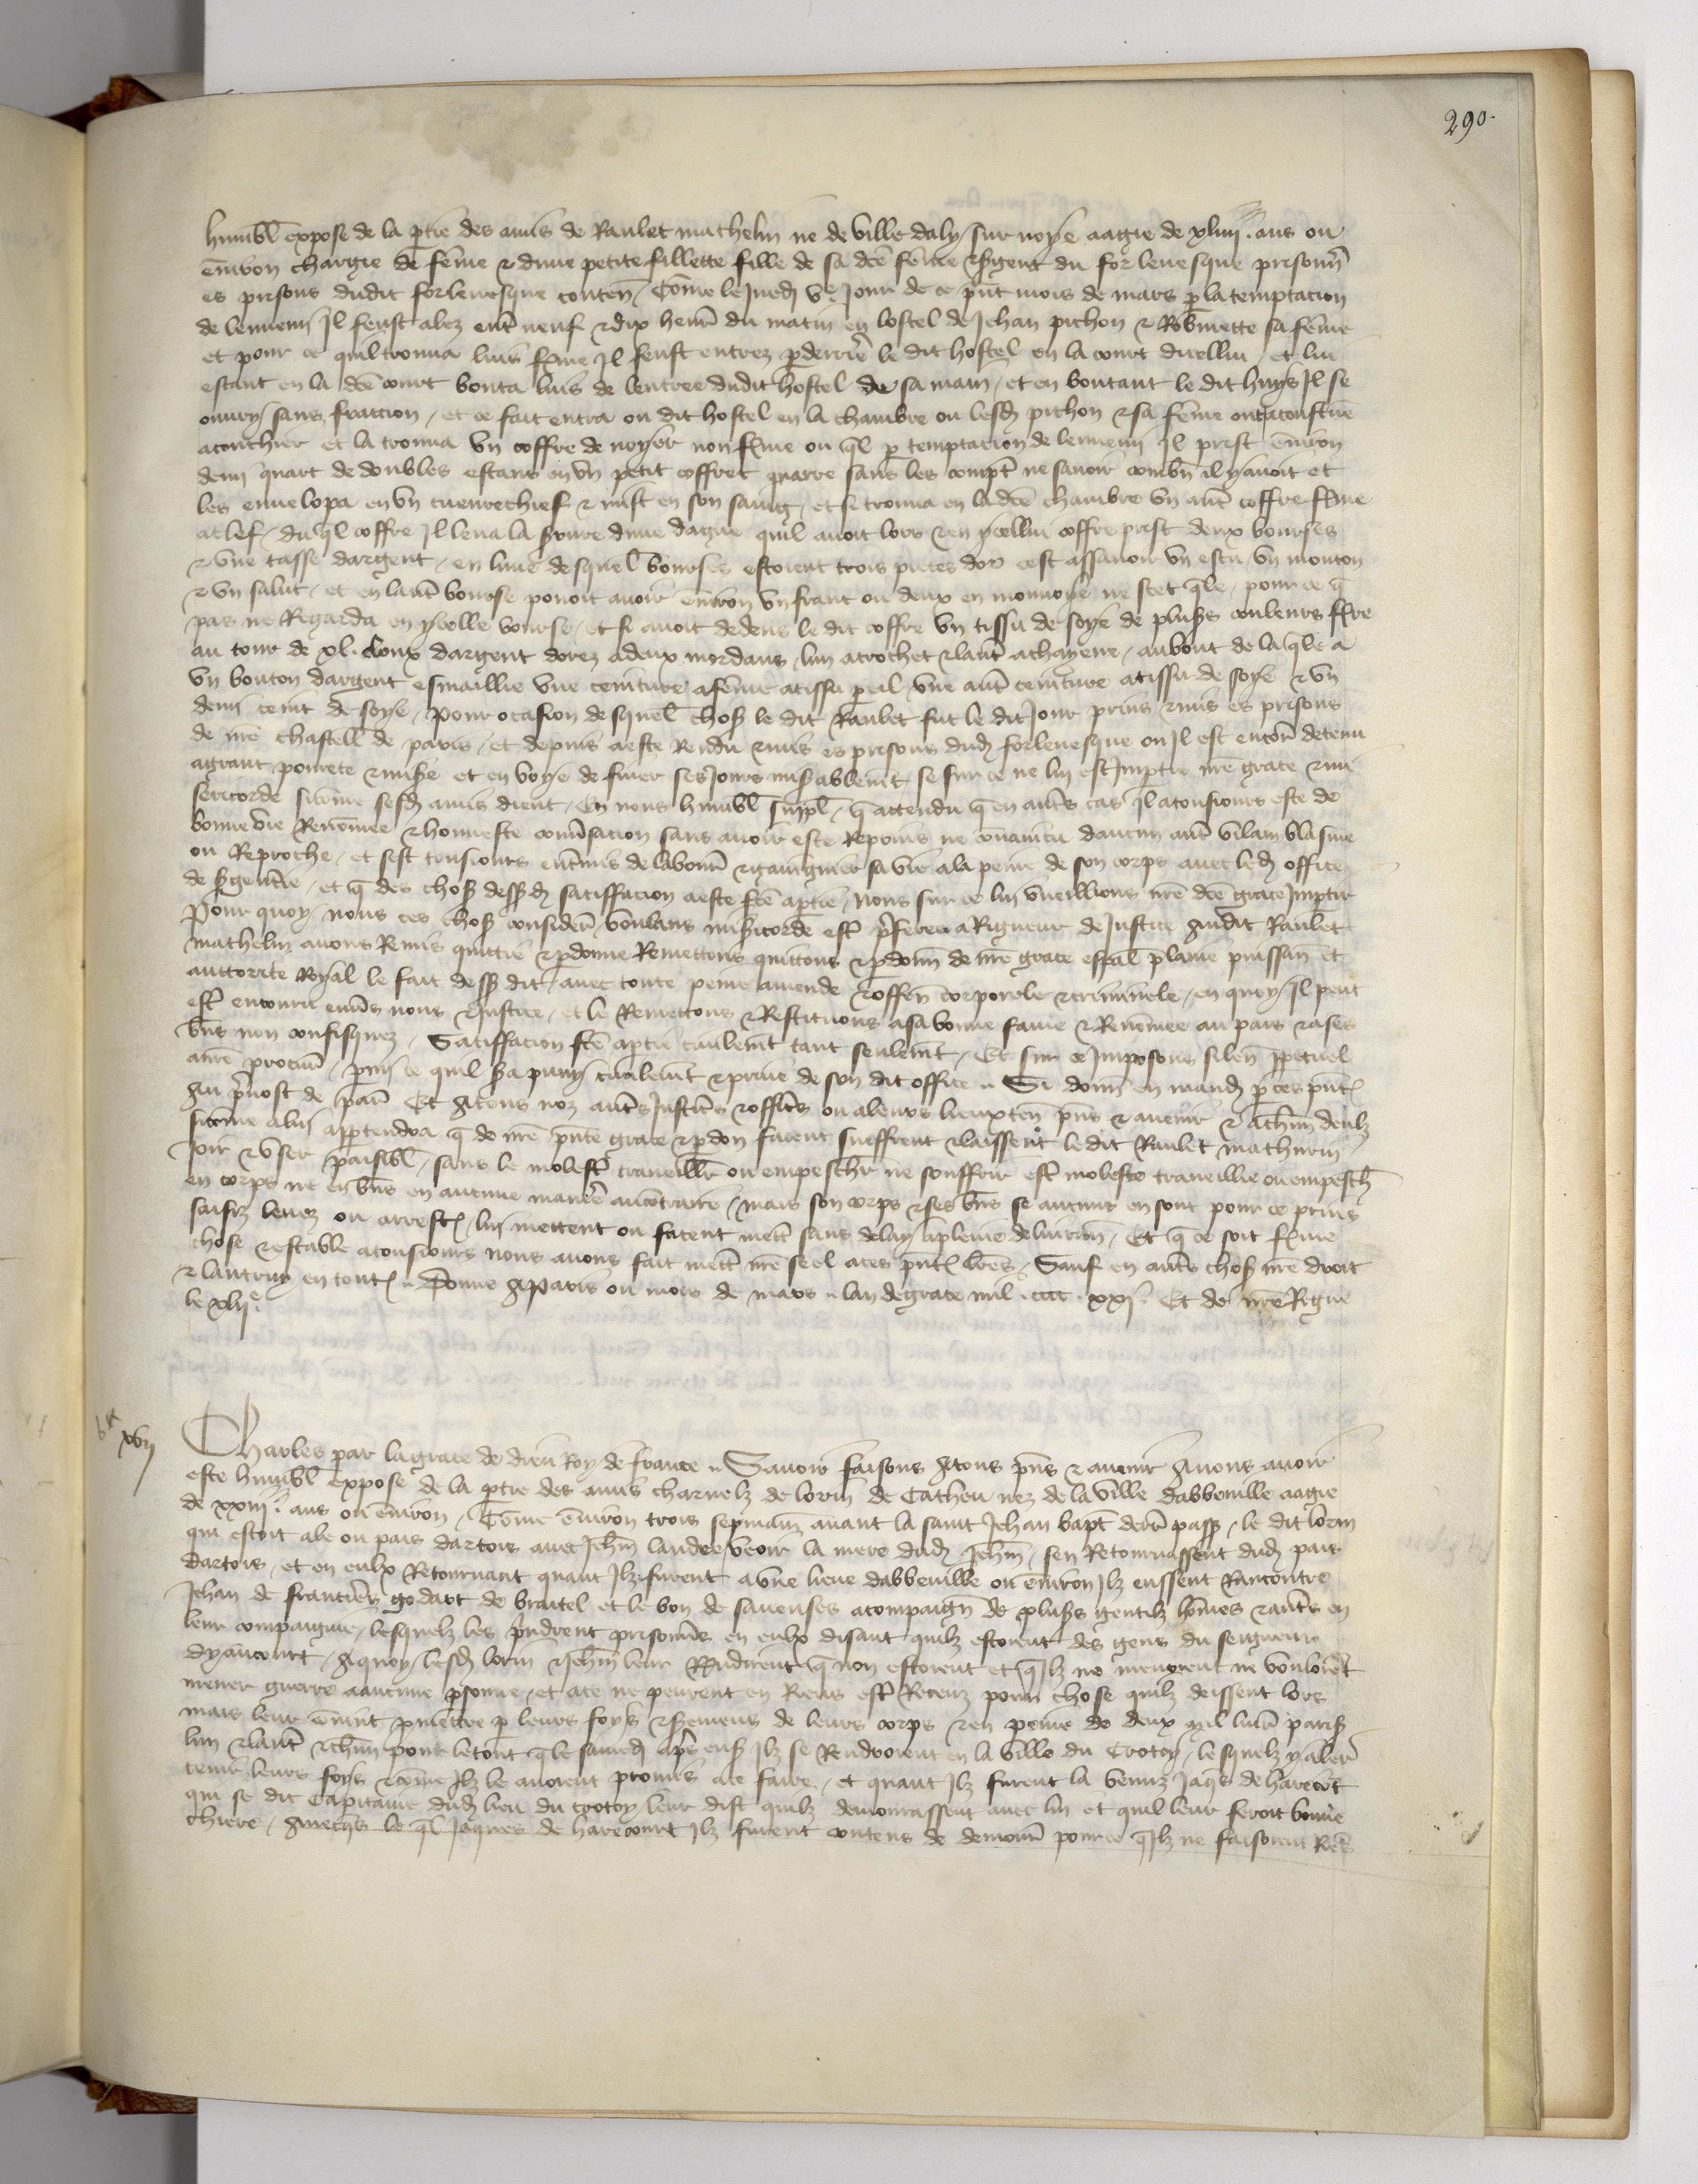 290.
humbl expose de la ptie des amis de Raulet mathelin ne de ville daly sur noye aagie de xliiii. ans ou
environ chargie de feme & dune petite fillette fille de sa dce feme & sgent du for levesque prisonn
es prisons dudit forlevesque conten Come le Juedj ve Jour de ce pnt mois de mars p la temptacion
de lennemj Il feust alez entre neuf & dix heur du matin en lostel de Jehan pichon & Robinette sa feme
et pour ce quil trouva luis fme Il feust entrez p derrire le dit hostel en la court dicellui et lui
estant en la dce court bouta luis de lentree dudit hostel de sa main et en boutant le dit huys Il se
ouvry sans fraccion et ce fait entra ou dit hostel en la chambre ou lesd pichon & sa feme ont acoustume
acouchier et la trouva vn coffre de noyer non fme ou ql p temptacion de lennemj Il prist environ
demj quart de doubles estans en vn petit coffret quarre sans les compter ne savoir combn il y avoit et
les envelopa en vn cuevrechief & mist en son saing et si trouva en la dce chambre vn aut coffre fme
a clef du ql coffre Il leva la srure dune dague quil avoit lors & en ycellui coffre prist deux bourses
& vne tasse dargent en lune desquel bourses estoient trois pieces dor cest assavoir vn escu vn mouton
& vn salut et en laut bourse povoit avoir environ vn franc ou deux en monnoye ne scet qle pour ce q
pas ne Regarda en ycelle bourse et si avoit dedens le dit coffre vn tissu de soye de pluss couleurs ffre
au tour de xl. cloux dargent dorez a deux mordans lun a crochet & laut a chayene au bout de la qle a
vn bouton dargent esmaillie vne ceinture a feme a tissu peil vne aut ceinture a tissu de soye & vn
demj ceint de soye Pour ocasion desquel chos le dit Raulet fut le dit Jour prins & mis es prisons
de nre chastell de paris et depuis a este Rendu & mis es prisons dud forlevesque ou Il est encor detenu
a grant povrete & mise et en voye de finer ses Jours misablemt se sur ce ne lui est Imptie nre grace & mi
sericorde sicome sesd amis dient En nous humbl suppl q attendu q en auts cas Il a tousiours este de
bonne vie Renomee & honneste convsacion sans avoir este Repris ne convaincu daucun aut vilain blasme
ou Reproche et sest tousiours entmis de labour & gaingnier sa vie a la peine de son corps avec led office
de sgentie et q des chos dessd satiffacion a este fce a ptie nous sur ce lui vueillions nre dce grace Imptir
Pour quoy nous ces chos considere voulans misicorde est preferee a Rigueur de Justice Audit Raulet
mathelin avons Remis quictie & pdonne Remettons quictons & pdonn de nre grace espal plaine puissan et
auttorite Royal le fait dess dit avec toute peine amende & offen corporele & criminele en quoy Il peut
est encouru envs nous & Justice et le Remettons & Restituons a sa bonne fame & Renomee au pais & a ses
bns non confisquez Satiffacion fce a ptie civilemt tant seulemt Et sur ce Imposons silen ppetuel
a nre procur pmj ce quil sa puny civilemt & prive de son dit office Si donn en mand p ces pnt
Au prvost de par Et A tous noz auts Justics & offics ou a leurs lieuxten pns & avenir & a chun deulz
sicome a luj apptendra q de nre pnte grace & pdon facent sueffrent & laissent le dit Raulet mathurin
Joir & vser paisibl sans le molest traveillr ou empeschr ne souffrir est moleste traveillie ou empesch
en corps ne en bns en aucune manire au contraire mais son corps & ses bns se aucuns en sont pour ce prins
saisiz levez ou arrest lui mettent ou facent mett sans delay a pleine delivran Et q ce soit fme
chose & estable a tousiours nous avons fait mett nre seel a ces pnt lres Sauf en auts chos nre droit
& lautruy en tout Donne A Paris ou mois de mars lan de grace mil. cccc. xxj. Et de nre Regne
le xlije.
xvij
Charles par la grace de dieu Roy de france Savoir faisons A tous pns & avenir A nous avoir
este humbl expose de la ptie des amis charnelz de lorin de Catheu nez de la ville dabbeville aagie
de xxiij. ans ou environ Come environ trois sepmain avant la saint Jehan bapt derr pass le dit lorin
qui estoit ale ou pais dartois avec Jehn landee veoir la mere dud Jehn sen Retournassent dud pais
dartois et en eulx Retournant quant Ilz furent a vne lieue dabbeville ou environ Ilz eussent Rancontre
Jehan de francires godart de braitel et le bon de saveuses acompaign de pluss gentilz homes & auts en
leur compaignie lesquelz les prindrent prisonns en eulx disant quilz estoient des gens du seigneur
dyaucourt A quoy lesd lorin & Jehn leur Rndirent q non estoient et qlz ne menoient ne vouloient
mener guerre a aucune psonne et a ce ne peurent en Riens est Receuz pour chose quilz deissent lors
mais leur convint pmettre p leurs foys & semens de leurs corps & en peine de deux mil livr paris
lun & laut & chun pour le tout q le samedj aprs ens Ilz se Rendroient en la ville du Crotoy lesquelz y aler
tenir leurs foys & come Ilz le avoient promis a ce faire et quant Ilz furent la venuz Jaqs de harecourt
qui se dit Capitaine dud lieu du crotoy leur dist quilz demourassent avec lui et quil leur feroit bonne
chiere Avecqs le ql Jaques de harecourt Ilz furent contens de demour pour ce qlz ne faisoient Riens